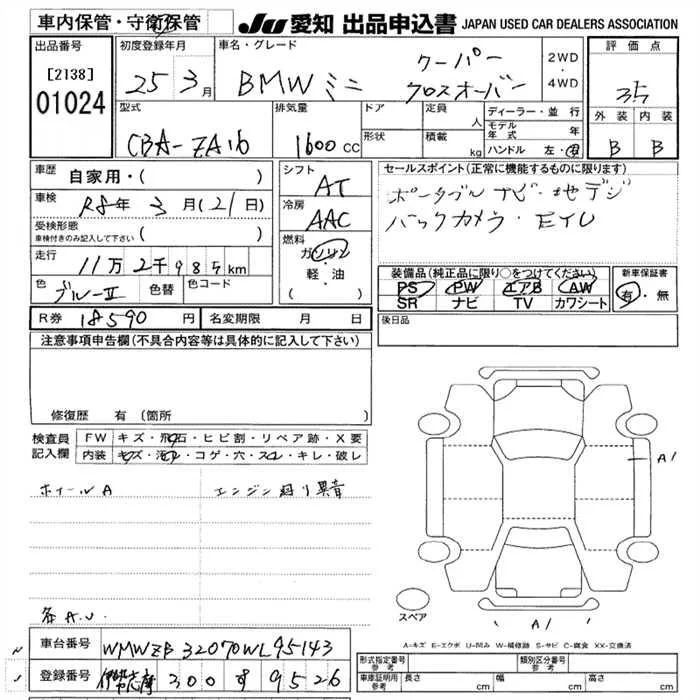 車内保管・守衛保管
JU 愛知 出品申込書 JAPAN USED CAR DEALERS ASSOCIATION
出品番号 初度登録年月 車名・グレード 評価点
[2138]
01024
25 3月 BMW ミニ クーパー クロスオーバー 2WD・4WD 3.5
型式 排気量 ドア 定員 人 ディーラー・並行 外装 内装
CBA-ZA16 1600 CC 形状 積載 kg モデル年式 年 B B
ハンドル 左・右
車歴 自家用・( ) シフト AT セールスポイント(正常に機能するものに限ります)
車検 R8年 3月(21日) 冷房 AAC ポータブルナビ・地デジ
受検形態 ( ) バックカメラ・ETC
車検付きのみ記入して下さい
走行 11万2千985km 燃料 ガソリン・軽・油 ( )
色 ブルーII 色替 色コード
装備品(純正品に限り○をつけてください) 新車保証書
PS PW エアB AW 有・無
SR ナビ TV カワシート
R券 18590円 名変期限 月 日 後日品
注意事項申告欄(不具合内容等は具体的に記入して下さい)
修復歴 有 (箇所 )
検査員記入欄 FW キズ・飛石・ヒビ割・リペア跡・X要
内装 キズ・汚レ・コゲ・穴・スレ・キレ・破レ
ホイールA エンジン廻り異音
A1
各A.U.
スペア
A1
A-キズ E-エクボ U-凹み W-補修跡 S-サビ C-腐食 XX-交換済
車台番号 WMWZB32070WL95143
登録番号 伊勢志摩 300 す 9526
形式指定番号 参考 類別区分番号 参考
車庫証明用 参考 長さ cm 幅 cm 高さ cm